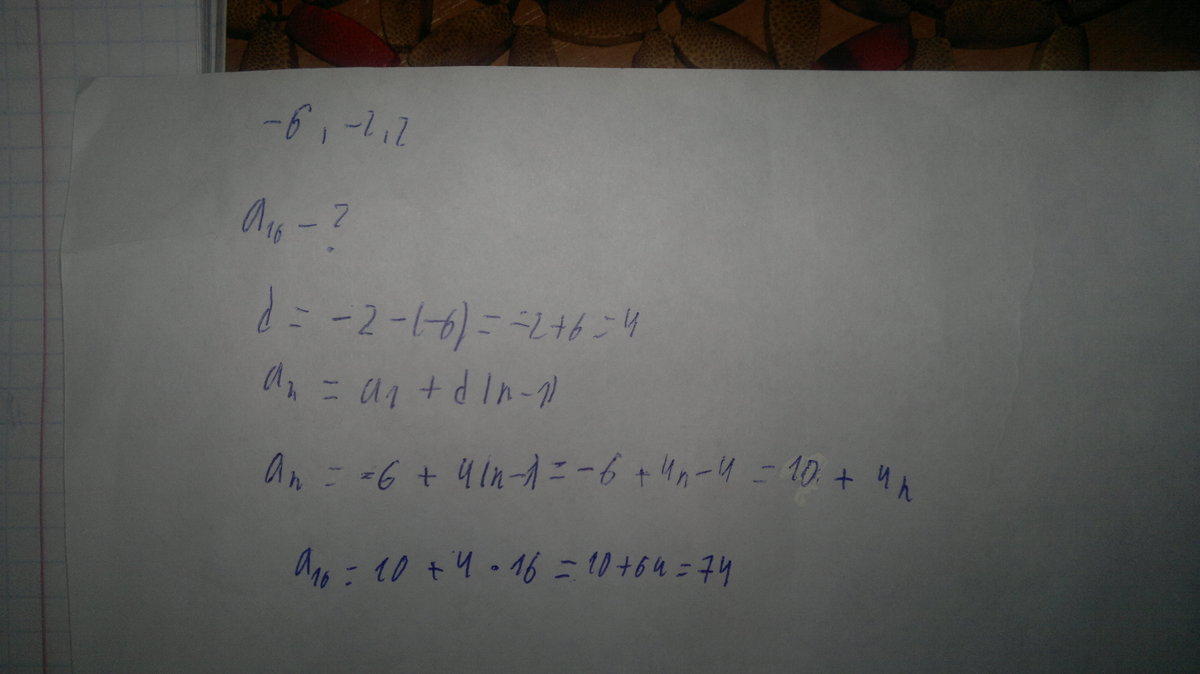 -6, -2, 2
a₁₆ - ?
d = -2 - (-6) = -2 + 6 = 4
aₙ = a₁ + d(n-1)
aₙ = -6 + 4(n-1) = -6 + 4n - 4 = 10 + 4n
a₁₆ = 10 + 4 · 16 = 10 + 64 = 74